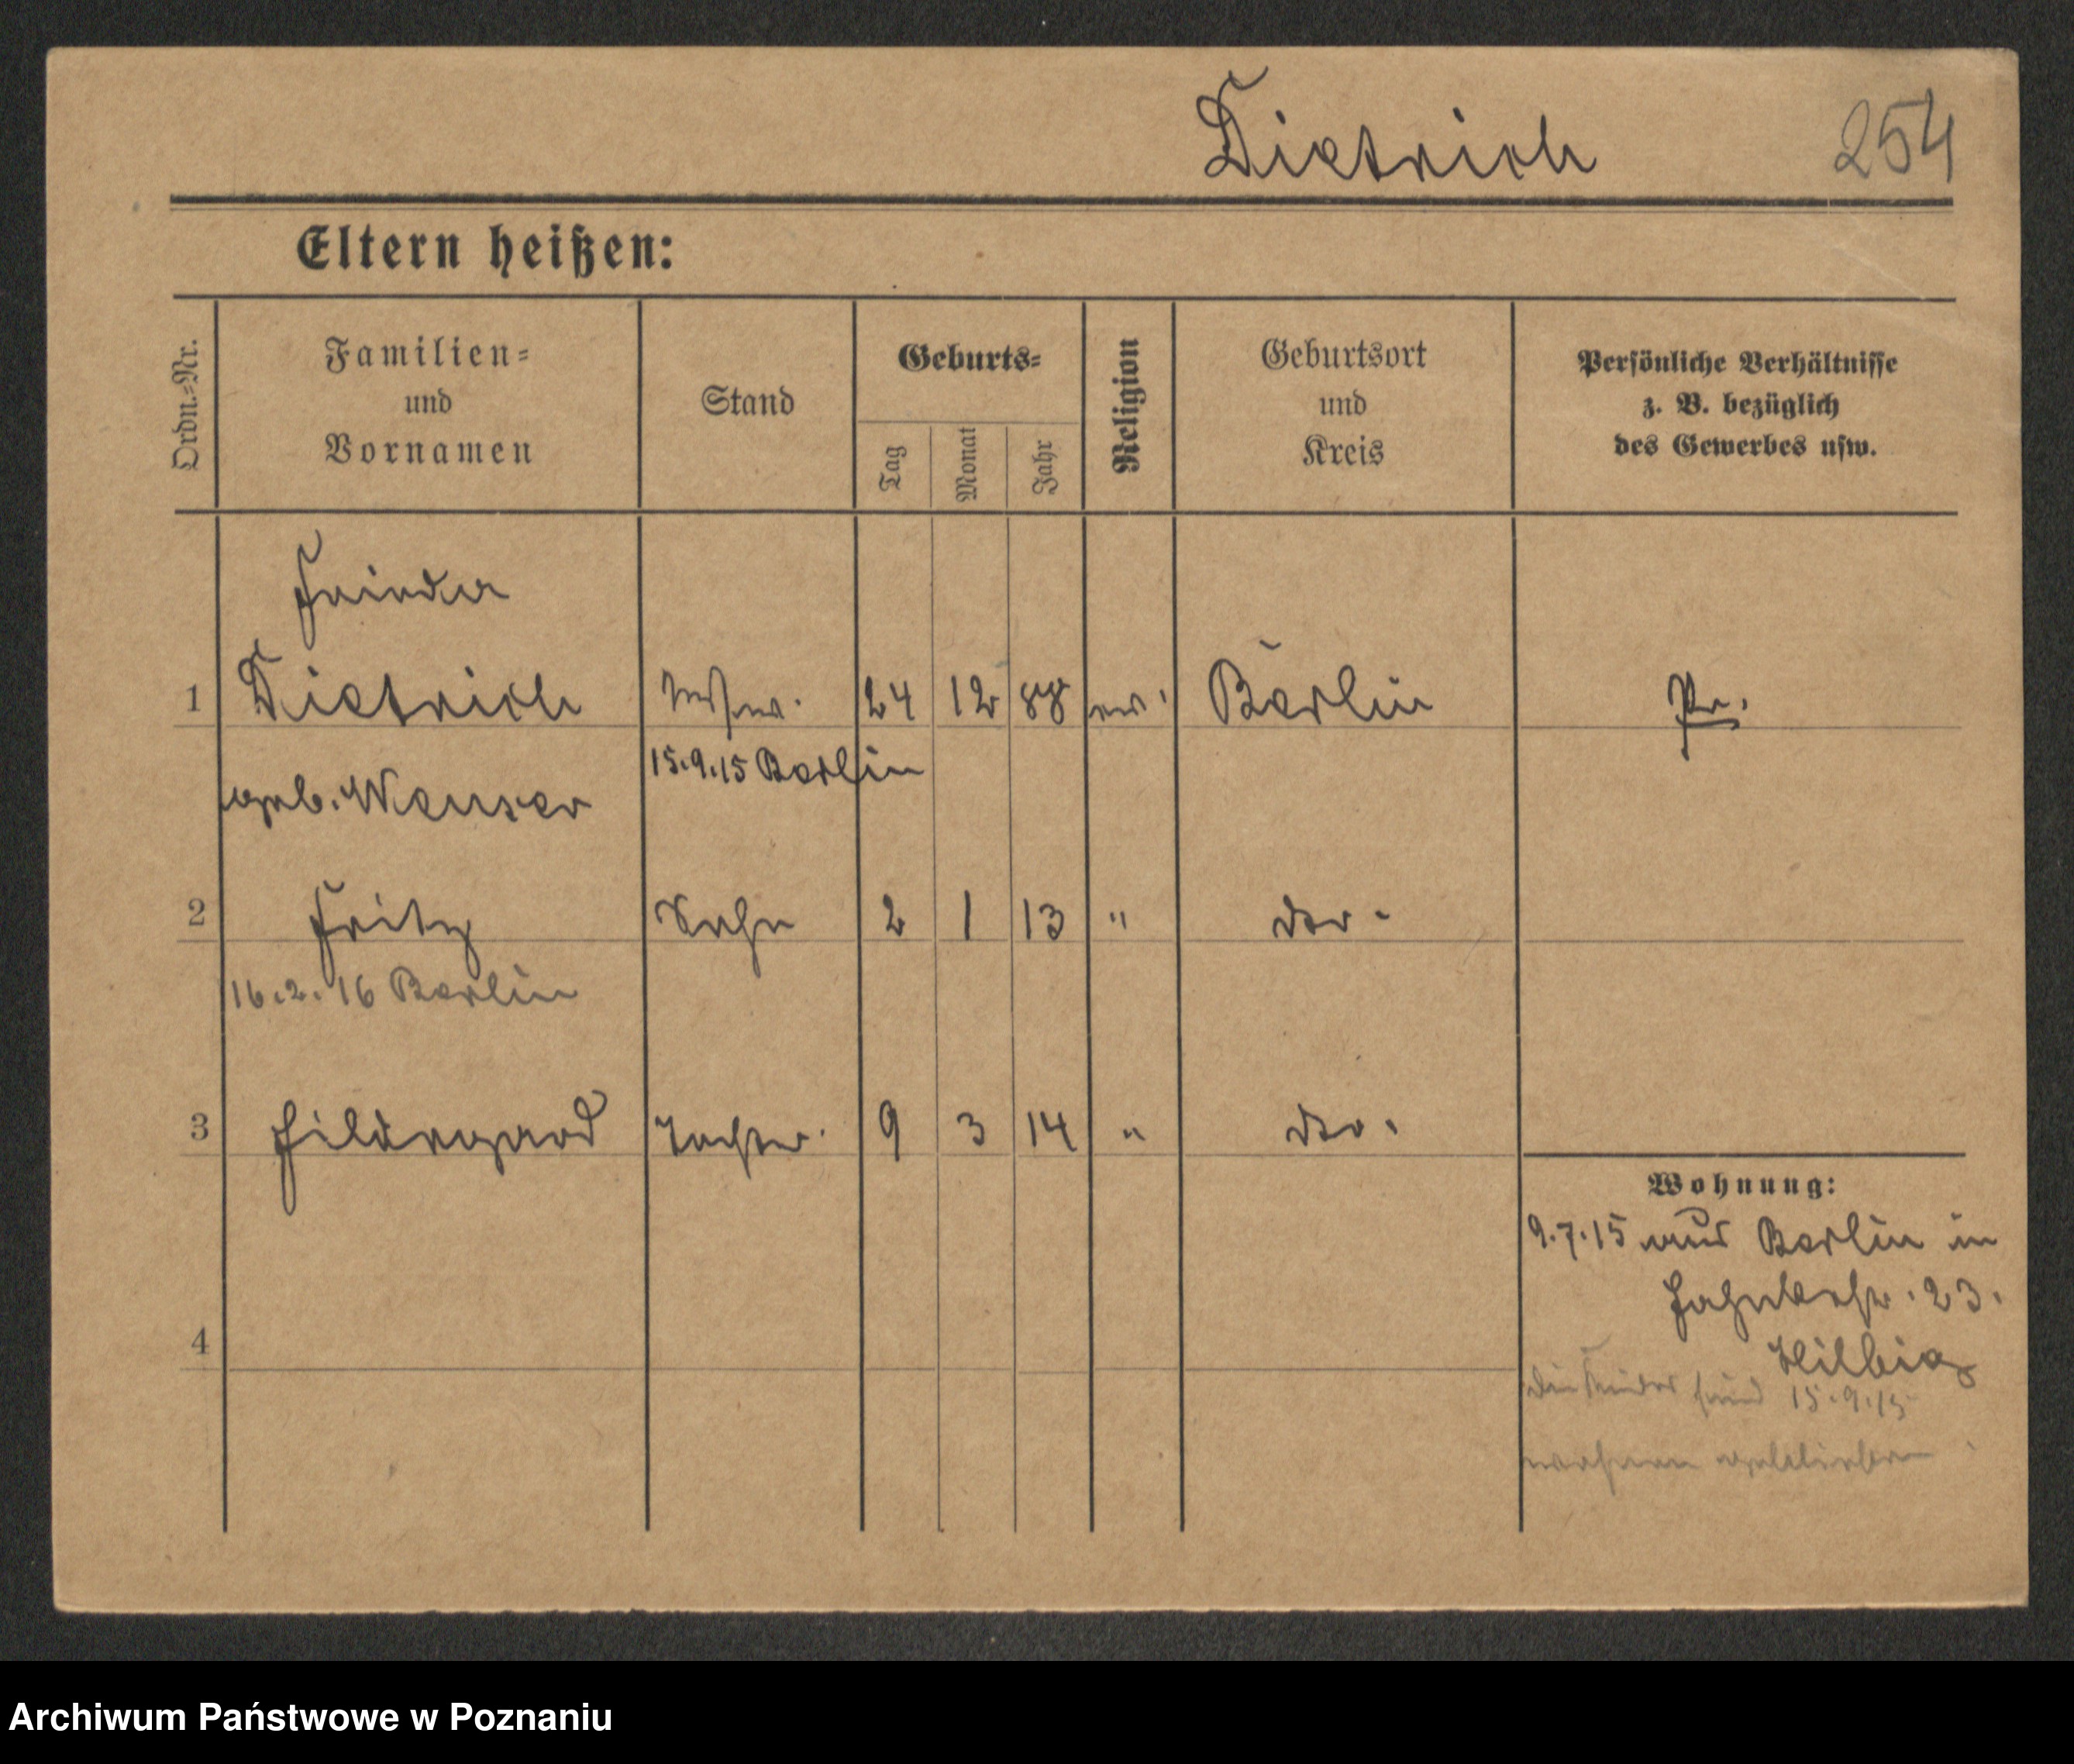 Dietrich 254
Eltern heißen:
Ordn.-Nr. Familien- und Vornamen Stand Geburts- Tag Monat Jahr Religion Geburtsort und Kreis Persönliche Verhältnisse z. B. bezüglich des Gewerbes usw.
Frieder
1 Dietrich 24 12 88 ev. Berlin Pr.
15.9.15 Berlin
geb. Wenser
2 Fritz Sohn 2 1 13 " dto.
16.2.16 Berlin
3 Hildegard Tochter. 9 3 14 " dto.
Wohnung:
9.7.15 aus Berlin in
23.
Hilbig
4
die Kinder sind 15.9.15
geblieben
Archiwum Państwowe w Poznaniu